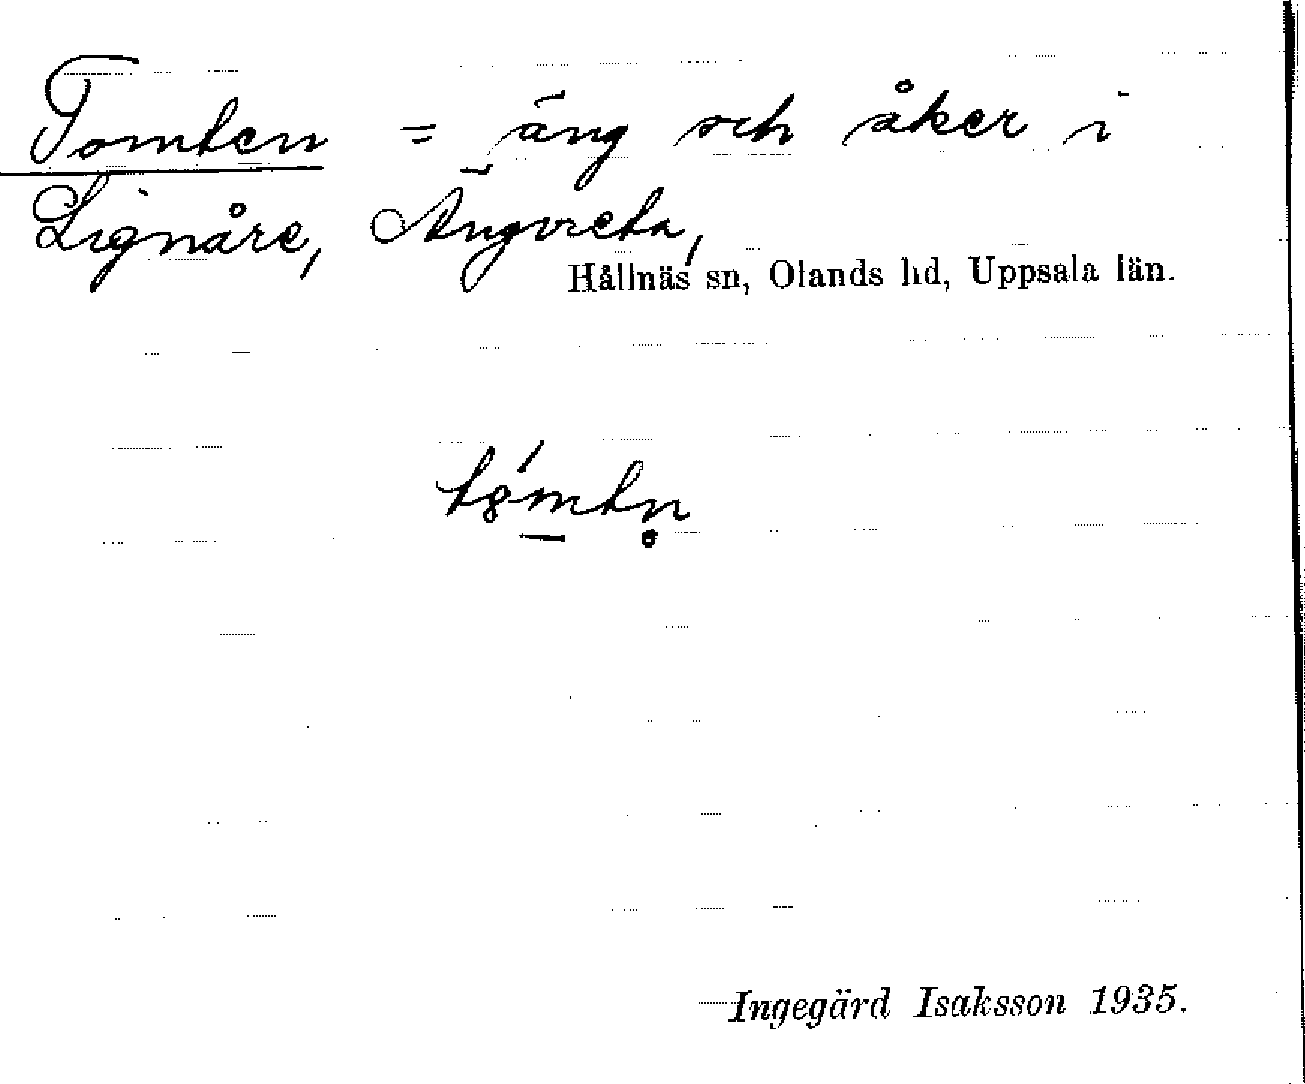 Tomten = äng och åker i
Lignåre, Ängvreta,
Hållnäs sn, Olands hd, Uppsala län.
Ingegärd Isaksson 1935.